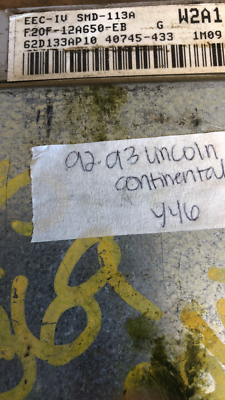 EEC-IV SMD-113A W2A1
F2OF-12A650-EB G
62D133AP10 40745-433 1M09
92-93 Lincoln
continental
Y46